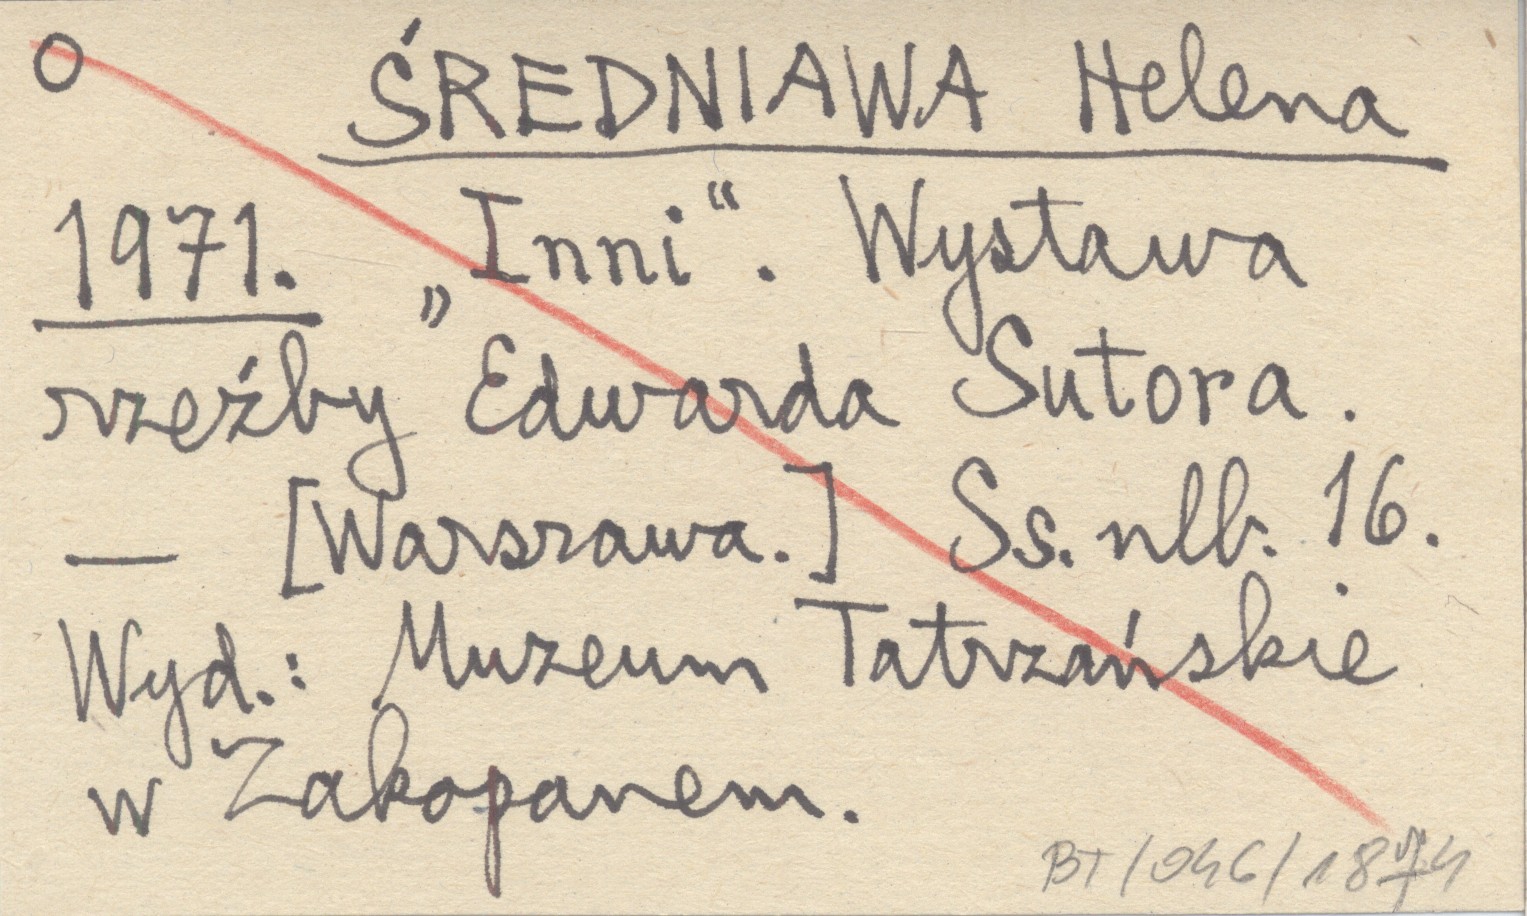 O ŚREDNIAWA Helena
1971. „Inni“. Wystawa
rzeźby Edwarda Sutora.
— [Warszawa.] Ss. nlb. 16.
Wyd.: Muzeum Tatrzańskie
w Zakopanem.
BT/046/1874